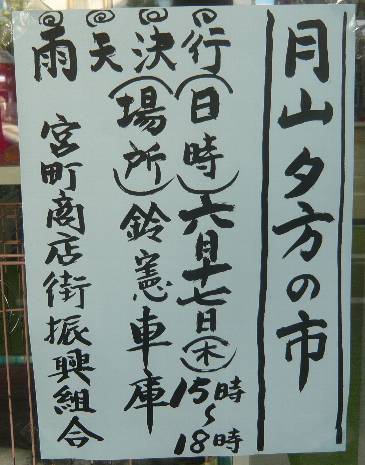 月山夕方の市
雨天決行
(日時)六月十七日(木)15時~18時
(場所)鈴憲車庫
宮町商店街振興組合